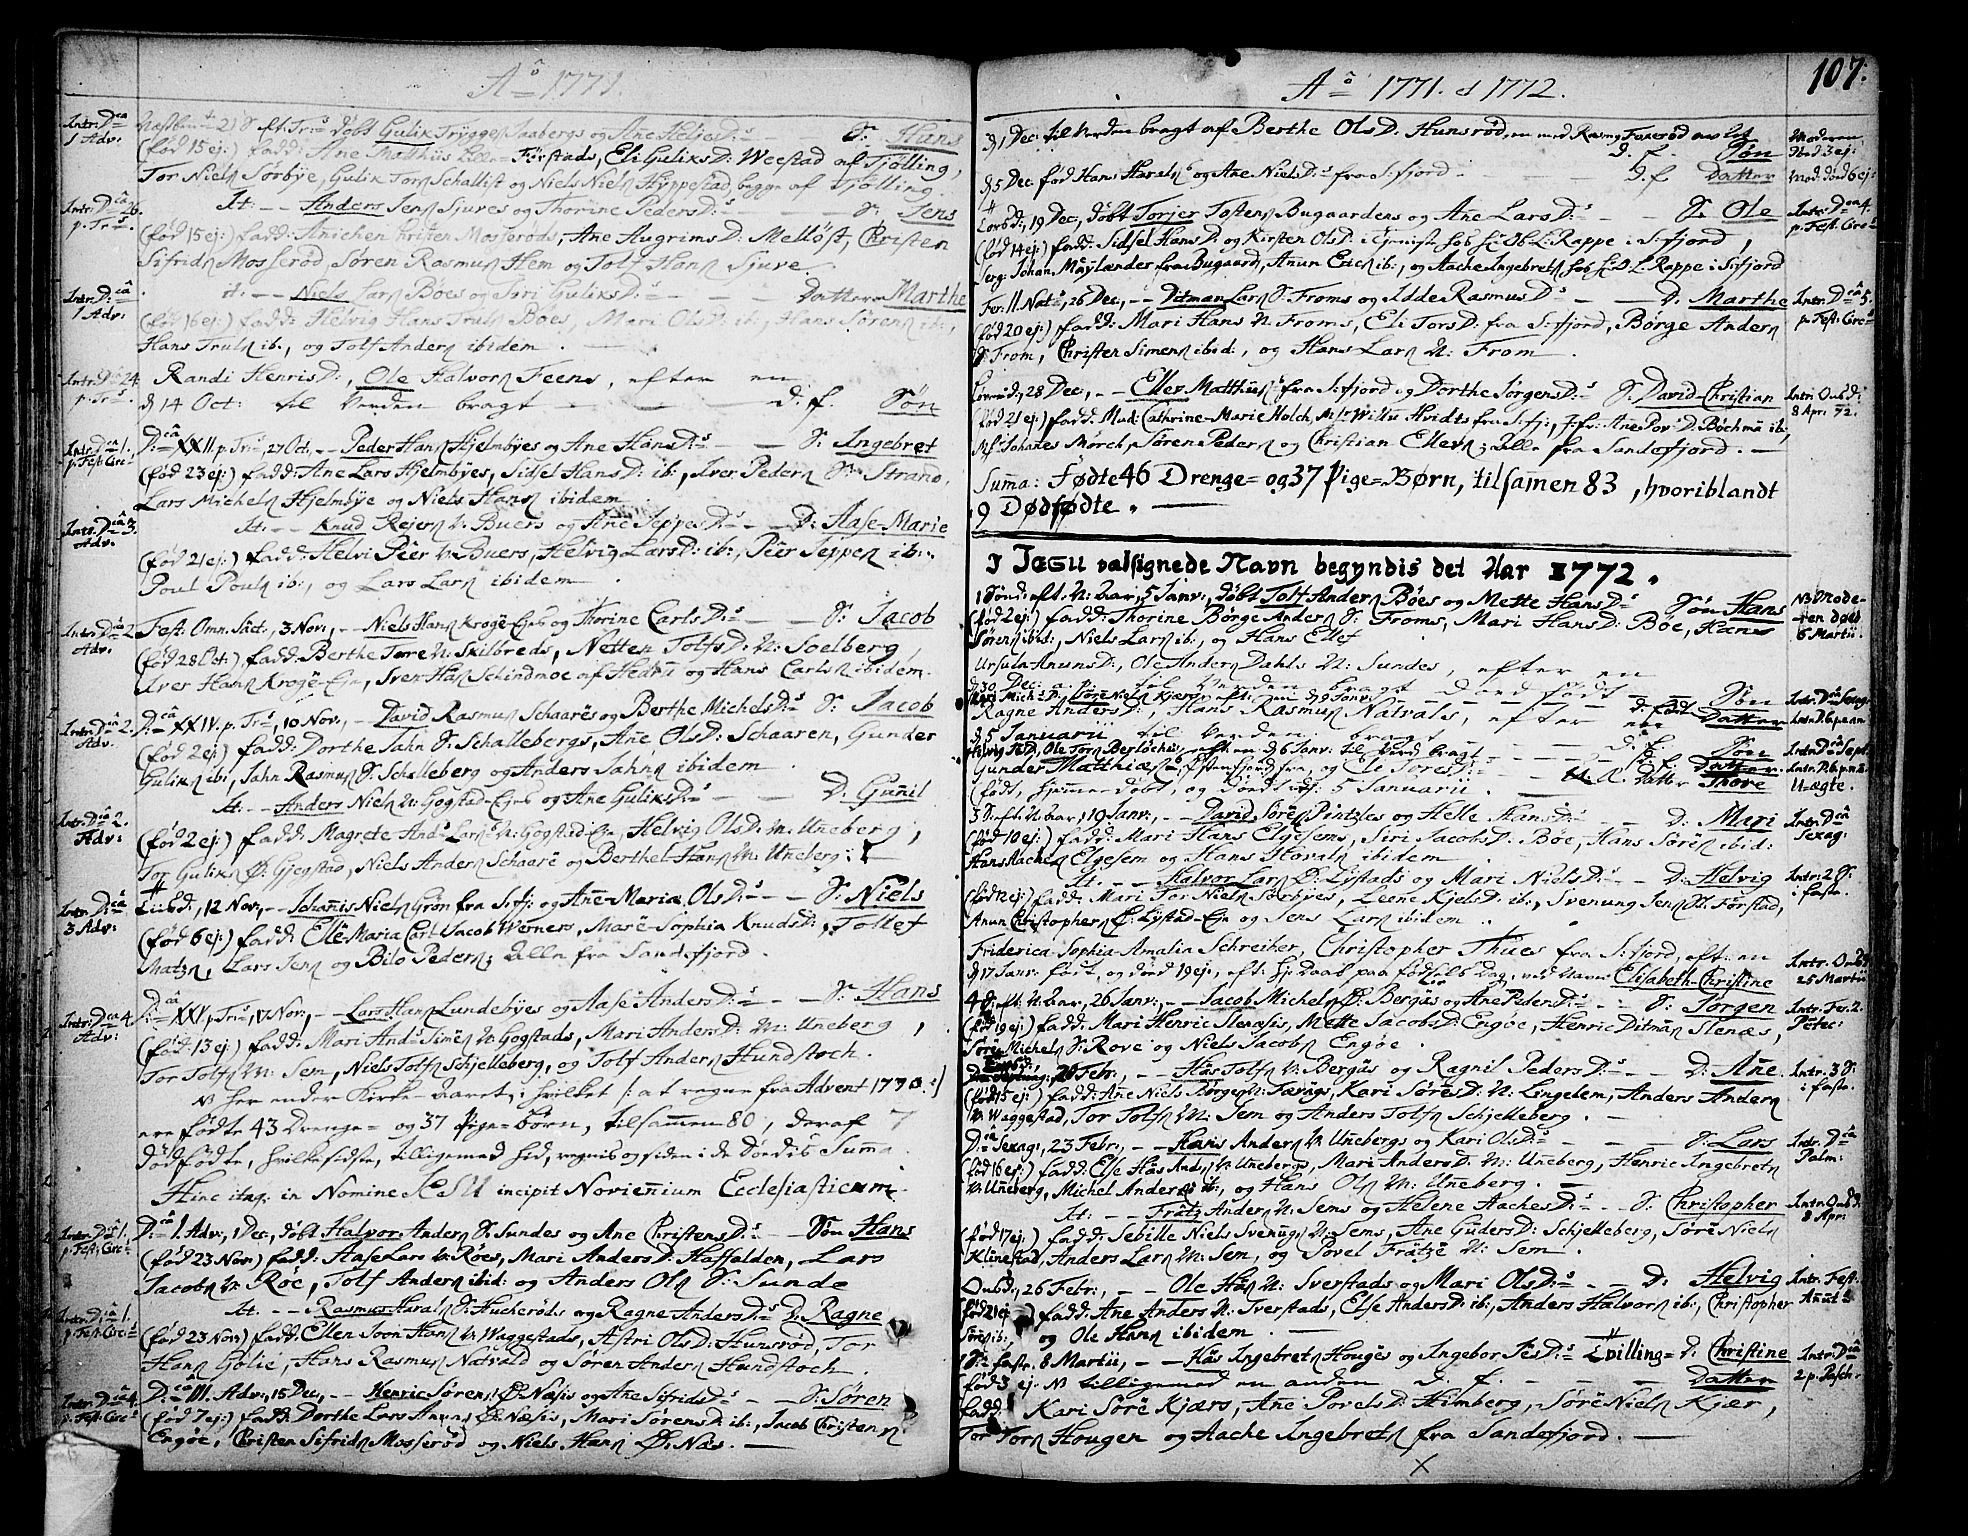 Aô 1771.
Intr: Dca
1 Adv:
Gulik Trygges Saabergs og Ane Helies D:s S: Hans
(fød 15 ej:) fadd: Ane Matthiis Lille=Fürstads, Eli Guliks D: Weestad af Tjølling,
Tor Niels Sørbye, Gulik Tors Schallist og Niels Niels Hyppestad begge af Tjølling.
Intr: Dca 26.
p. Tr:s
It: -- Anders Jens Sjures og Thorine Peders D:s - - S: Jens
(fød 15 ej:) fadd: Anichen Christen Mosserøds, Ane Augrims D: Melløst, Christen
Sifrids Mosserød, Søren Rasmus Hem og Tolf Hans Sjure.
Intr: Dca
1 Adv:
it: -- Niels Lars Bøes og Siri Guliks D:s - - - Datter Marthe
(fød 16 ej:) fadd: Helvig Hans Truls Bøes, Mari Ols D: ib:, Hans Sørens ib:,
Hans Truls ib:, og Tolf Anders ibidem.
Intr: Dca 24
p: Tr:s
Randi Henris D:, Ole Halvors Feens, efter en
d 14 Oct: til Verden bragt - - - d. f. Søn
Intr: Dca 1.
p. Fest: Circ:s
D:ca XXII. p. Tr:s 27 Oct, -- Peder Hans Hjelmbyes og Ane Hans D:s - - S: Ingebret
(fød 23 ej:) fadd: Ane Lars Hjelmbyes, Sidsel Hans D: ib:, Iver Peders Strand,
Lars Michels Hjelmbye og Niels Hans ibidem.
Intr: Dca 3.
Adv:
It: -- Knud Rejers V: Buers og Ane Jeppes D:s - - D: Aase-Marie
(fød 21 ej:) fadd: Helvi Peer V: Buers, Helvig Lars D: ib:, Peer Jeppes ib:,
Poul Pouls ib:, og Lars Lars ibidem.
Intr: Dca 2
Adv:
Fest. Omn. Sact:, 3 Nov:, -- Niels Hans Kroge-Ejes og Thorine Carls D:s - - S: Jacob
(fød 28 Oct:) fadd: Berthe Tore N: Skilbreds, Netten Tolfs D: N: Soelberg,
Iver Hans Kroge-Eje, Sven Hans Schindmoe af Hedrū og Hans Carls ibidem.
Intr: Dca 2.
Adv:
D:ca XXIV. p. Tr:s, 10 Nov:, -- David Rasmus Schaares og Berthe Michels D:s S: Jacob
(fød 2 ej:) fadd: Dorthe Jahn S: Schallebergs, Ane Ols D: Schaaren, Gunder
Guliks ib:, Jahn Rasmus S: Schalleberg og Anders Jahns ibidem.
Intr: Dca 2.
Adv:
It: -- Anders Niels N: Gogstad-Ejes og Ane Guliks D:s - - D: Gunil
(fød 2 ej:) fadd: Magrete And:s Lars N: Gogstad-Eje, Helvig Ols D: M: Uneberg,
Tor Guliks Ø: Gjegstad, Niels Anders Schaare og Berthel Hans M: Uneberg.
Intr: Dca
3 Adv:
12 Nov:, -- Johanes Niels Grøn fra S:fj: og Ane-Maria Ols D:s - - S: Niels
(fød 6 ej:) fadd: Else Maria Carl Jacob Werners, Mare-Sophia Knuds D:, Tollef
Matzs, Lars Jens og Bilo Peders; Alle fra Sandefjord.
Intr: Dca 4
Adv:
D:ca XXV. p. Tr:s, 17 Nov:, -- Lars Hans Lundebyes og Aase Anders D:s - - S: Hans
(fød 13 ej:) fadd: Mari And:s Simes N: Gogstads, Mari Anders D: M: Uneberg,
Tor Tolfs M: Sem, Niels Tolfs Schjelleberg, og Tolf Anders Hundstoch.
NB her ender Kirke-Aaret, i hvilket /: at regne fra Advent 1770 :/
ere fødte 43 Drenge= og 37 Pige=børn, tilsamen 80, deraf 7
dødfødte, hvilke sidste, tilligemed hid, regnis og siden i de Dødis Suma.
Hinc itaq: in Nomine JESU incipit Noviennium Ecclesiasticum.
Intr: Dca 1.
p. Fest: Circ:s
D:ca 1. Adv:, 1 Dec, døbt Halvor Anders S: Sundes og Ane Christens D:s - - Søn Hans
(fød 23 Nov:) fadd: Aase Lars V: Røes, Mari Anders D: Haffalden, Lars
Jacobs V: Roe, Tolf Anders ibid: og Anders Ols S: Sunde
Intr: Dca 1.
p. Fest: Circ:s
It: -- Rasmus Harals S: Huckerøds og Ragne Anders D:s D: Ragne
(fød 23 Nov:) fadd: Ellen Joon Hans V: Waggestads, Astri Ols D: Hunsrød, Tor
Hans Golie, Hans Rasmus Natvald og Søren Anders Hundstoch.
Intr: Dca 4.
p. Fest: Circ:s
D:ca III. Adv:, 15 Dec, -- Henric Sørens Ø: Næsis og Ane Sifrids D:s - - S: Søren
(fød 7 ej:) fadd: Dorthe Lars Anuns Ø: Næsis, Mari Sørens D: ib:, Jacob Christens
Engøe, Christen Sifrids Mosserød og Niels Hans Ø: Næs.
Aô 1771. & 1772.
107.
d 1 Dec: til Verden bragt af Berthe Ols D: Hunsrød, en med Rasmus
d. f. Søn
Moderen
død 3 ej:
d 5 Dec. fød Hans Harals og Ane Niels D:s fra S:fjord - - - d. f. Datter
Mod: død 6 ej:
Løvsd:, 19 Dec, døbt Torjer Tostens Bugaardens og Ane Lars D:s - - S: Ole
(fød 14 ej:) fadd: Sidsel Hans D: og Kirsten Ols D: i Tjeniste hos L. Rappe i S:fjord,
Serg: Johan Maylænder fra Bugaard, Anun Erics ib:, og Aache Ingebrets hos L. Rappe i S:fjord
Intr: Dca 4.
p. Fest: Circ:s
Fer: II. Nat:s, 26 Dec, -- Ditman Lars S: Froms og Idde Rasmus D:s - - D: Marthe
(fød 20 ej:) fadd: Mari Hans N: Froms, Eli Tors D: fra S:fjord, Børge Anders
S: From, Christen Simens ibid:, og Hans Lars N: From.
Intr: Dca 5.
p. Fest: Circ:s
28 Dec, -- Ellev Matthiis fra S:fjord og Dorthe Jørgens D:s S: David-Christian
(fød 21 ej:) fadd: Mad: Cathrine-Marie Holch, Hvidts fra S:fj:, Jfr: Ane Pov: D: Bøchma ib:,
Mr: Johanes Mørch, Søren Peders og Christian Ellevs; alle fra Sandefjord.
Intr: Onsd:
8 Apr: 72.
Suma: Fødte 46 Drenge= og 37 Pige=Børn, tilsamen 83, hvoriblandt
9 Dødfødte.
I JESU valsignede Navn begyndis det Aar 1772.
1 Sønd: eft: N: aar, 5 Janv:, døbt Tolf Anders Bøes og Mette Hans D:s Søn Hans
(fød 2 ej:) fadd: Thorine Børge Anders S: Froms, Mari Hans D: Bøe, Hans
Sørens ibid:, Niels Lars ib:, og Hans Ellef
NB Mode-
ren døde
6 Martii.
Ursula Anuns D:, Ole Anders Dahls N: Sundes, efter en
d 30 Dec: a. p. til Verden bragt død født - - Søn
Mari Mich: D:, Søre Niels Kjærs eft: en d 9 Janv: d: født Datter
Ragne Anders D:, Hans Rasmus Natvals, efter en
d 5 Januarii til Verden bragt - - - d. f. Søn
Ole Tors Berløchis, efter en d 6 Janv: til Verd: bragt - - d. f. Datter
Gunder Matthiæs, Østenfjord fra, og Ele Tores D:s - - Datter Thore
født, hjemme-døbt, og død 5 Januarii.
U-ægte.
3 S: eft: N: aar, 19 Janv:, -- David Søre Pintzles og Helle Hans D:s - - D: Mari
(fød 10 ej:) fadd: Mari Hans Elgesems, Siri Jacobs D: Bøe, Hans Søres ibid:
Hans Aaches Elgesem og Hans Hovals ibidem.
Intr: Dca
Sexag:
It: -- Halvor Lars Ø: Lystads og Mari Niels D:s - - D: Helvig
(fød 12 ej:) fadd: Mari Tor Niels Sørbyes, Leene Kjels D: ib:, Svenung Jens N: Forstad,
Anun Christophers Ø: Lystad-Eje og Jens Lars ibidem.
Intr: 2 S:
i faste.
Friderica-Sophia-Amalia Schreiber, Christopher Thues fra S:fjord, eft: en
d 17 Janv: født, og død 19 ej:, eft: hj: daab paa fødsels Dag, ved Navn Elisabeth-Christine
Intr: Onsd:
25 Martii
4 S: eft: N: aar, 26 Janv:, -- Jacob Michels Ø: Bergas og Ane Peders D:s - - S: Jørgen
(fød 19 ej:) fadd: Mari Henric Slenæsis, Mette Jacobs D: Engøe, Henric Ditmas Slenæs,
Søre Michels S: Rove og Niels Jacobs Engøe.
Intr: Fer: 2.
Petec:
20 Febr:, -- Hans Tolfs V: Bergas og Ragnil Peders D:s - - D: Ane
(fød 15 ej:) fadd: Ane Niels Børges N: Fævangs, Kari Søres D: N: Lingelem, Anders Anders
V: Waggestad, Tor Tolfs M: Sem og Anders Tolfs Schjelleberg.
Intr: 3 S:
i faste.
D:ca Sexag:, 23 Febr:, -- Hans Anders V: Unebergs og Kari Ols D:s - - S: Lars
(fød 16 ej:) fadd: Else Hans And: V: Unebergs, Mari Anders D: N: Uneberg, Henric Ingebrets
V: Uneberg, Michel Anders ib:, og Hans Ols N: Uneberg.
Intr: Dca
Palm:
It: -- Frätz Anders N: Sems og Helene Aaches D:s - - S: Christopher
(fød 17 ej:) fadd: Sebille Niels Svenugs N: Sems, Ane Guders D: Schjelleberg, Søre Niels
Klinestad, Anders Lars N: Sem, og Povel Frätze N: Sem.
Intr: Onsd:
8 Apr:
Onsd:, 26 Febr:, -- Ole Hans N: Sverstads og Mari Ols D:s - - D: Helvig
fød 21 ej:) fadd: Ane Anders N: Sverstads, Else Anders D: ib:, Anders Halvors ib:, Christopher
Søres ib: og Ole Hans ibidem.
Intr: Fest:
Anut:s
S: i faste. 8 Martii, -- Hans Ingebrets Houges og Ingebor Jes D:s Tvilling= D: Christine
(fød 3 ej: NB tilligemed en anden d. f. - - - Datter
fadd: Kari Søre Kjærs, Ane Povels D: Himberg, Søre Niels Kjær,
Tor Tors Hougen og Aache Ingebrets fra Sandefjord.
Intr: Dca
2 p. Pasch: